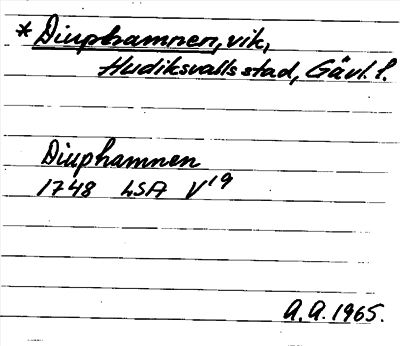 * Diuphamnen, vik,
Hudiksvalls stad, Gävl. l.
Diuphamnen
1748 LSA V19
A.A. 1965.